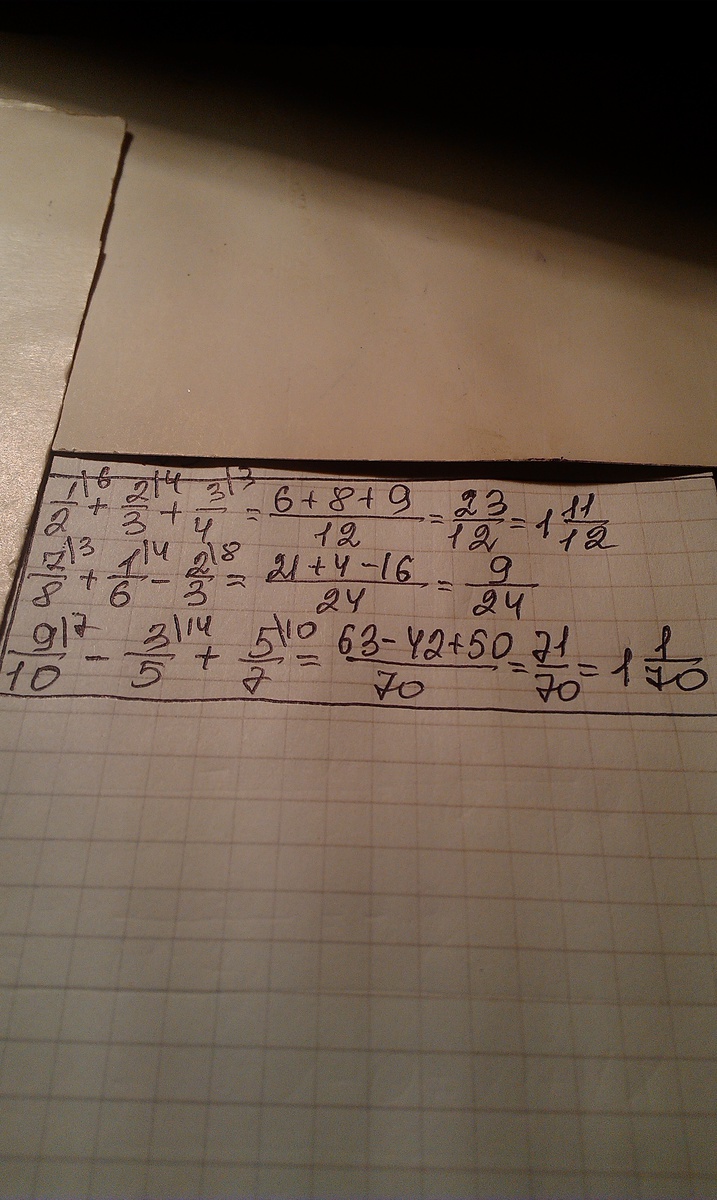 1/2\6 + 2/3\4 + 3/4\3 = (6+8+9)/12 = 23/12 = 1 11/12
7/8\3 + 1/6\4 - 2/3\8 = (21+4-16)/24 = 9/24
9/10\7 - 3/5\14 + 5/7\10 = (63-42+50)/70 = 71/70 = 1 1/70